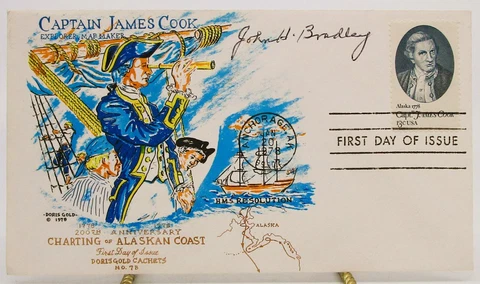 CAPTAIN JAMES COOK
EXPLORER, MAP MAKER
John H. Bradley
Alaska 1778
Capt. JAMES COOK
13c USA
ANCHORAGE, AK
JAN
20
1978
FIRST DAY OF ISSUE
H.M.S RESOLUTION
-DORIS GOLD-
© 1978
1778 1978
200TH ANNIVERSARY
CHARTING OF ALASKAN COAST
First Day of Issue
DORIS GOLD CACHETS
NO. 78
ALASKA